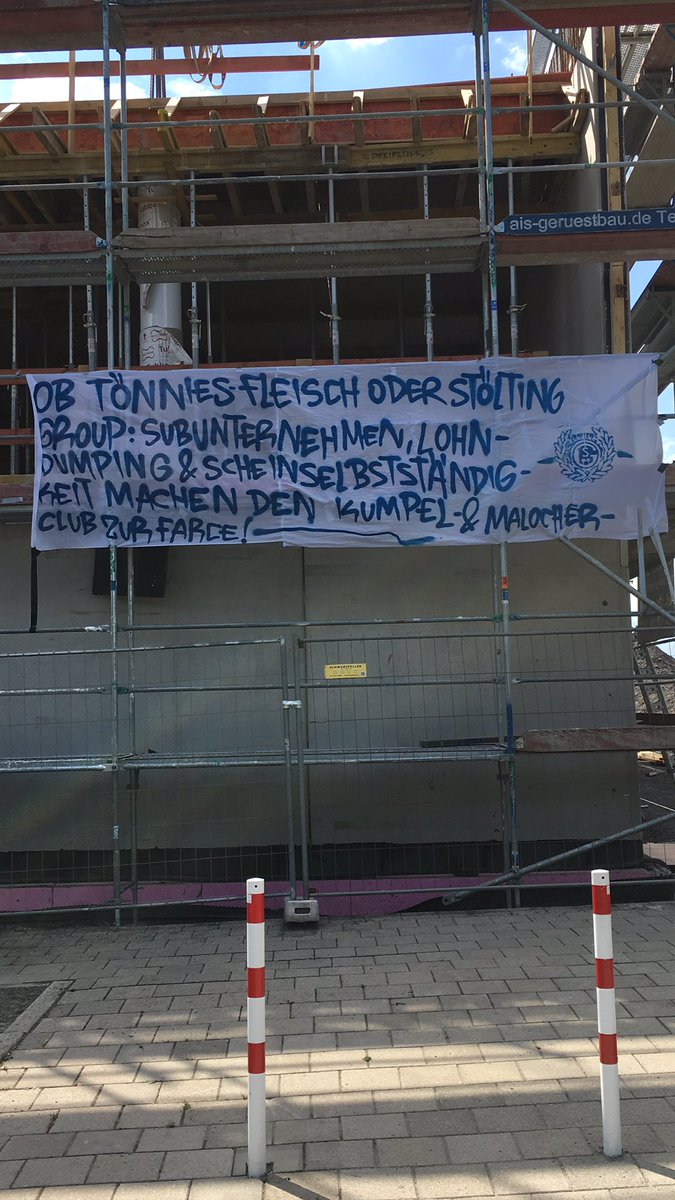 PFEIFER
ais-geruestbau.de Te
OB TÖNNIES-FLEISCH ODER STÖLTING
GROUP: SUBUNTERNEHMEN, LOHN-
DUMPING & SCHEINSELBSTSTÄNDIG-
KEIT MACHEN DEN KUMPEL- & MALOCHER-
CLUB ZUR FARCE!